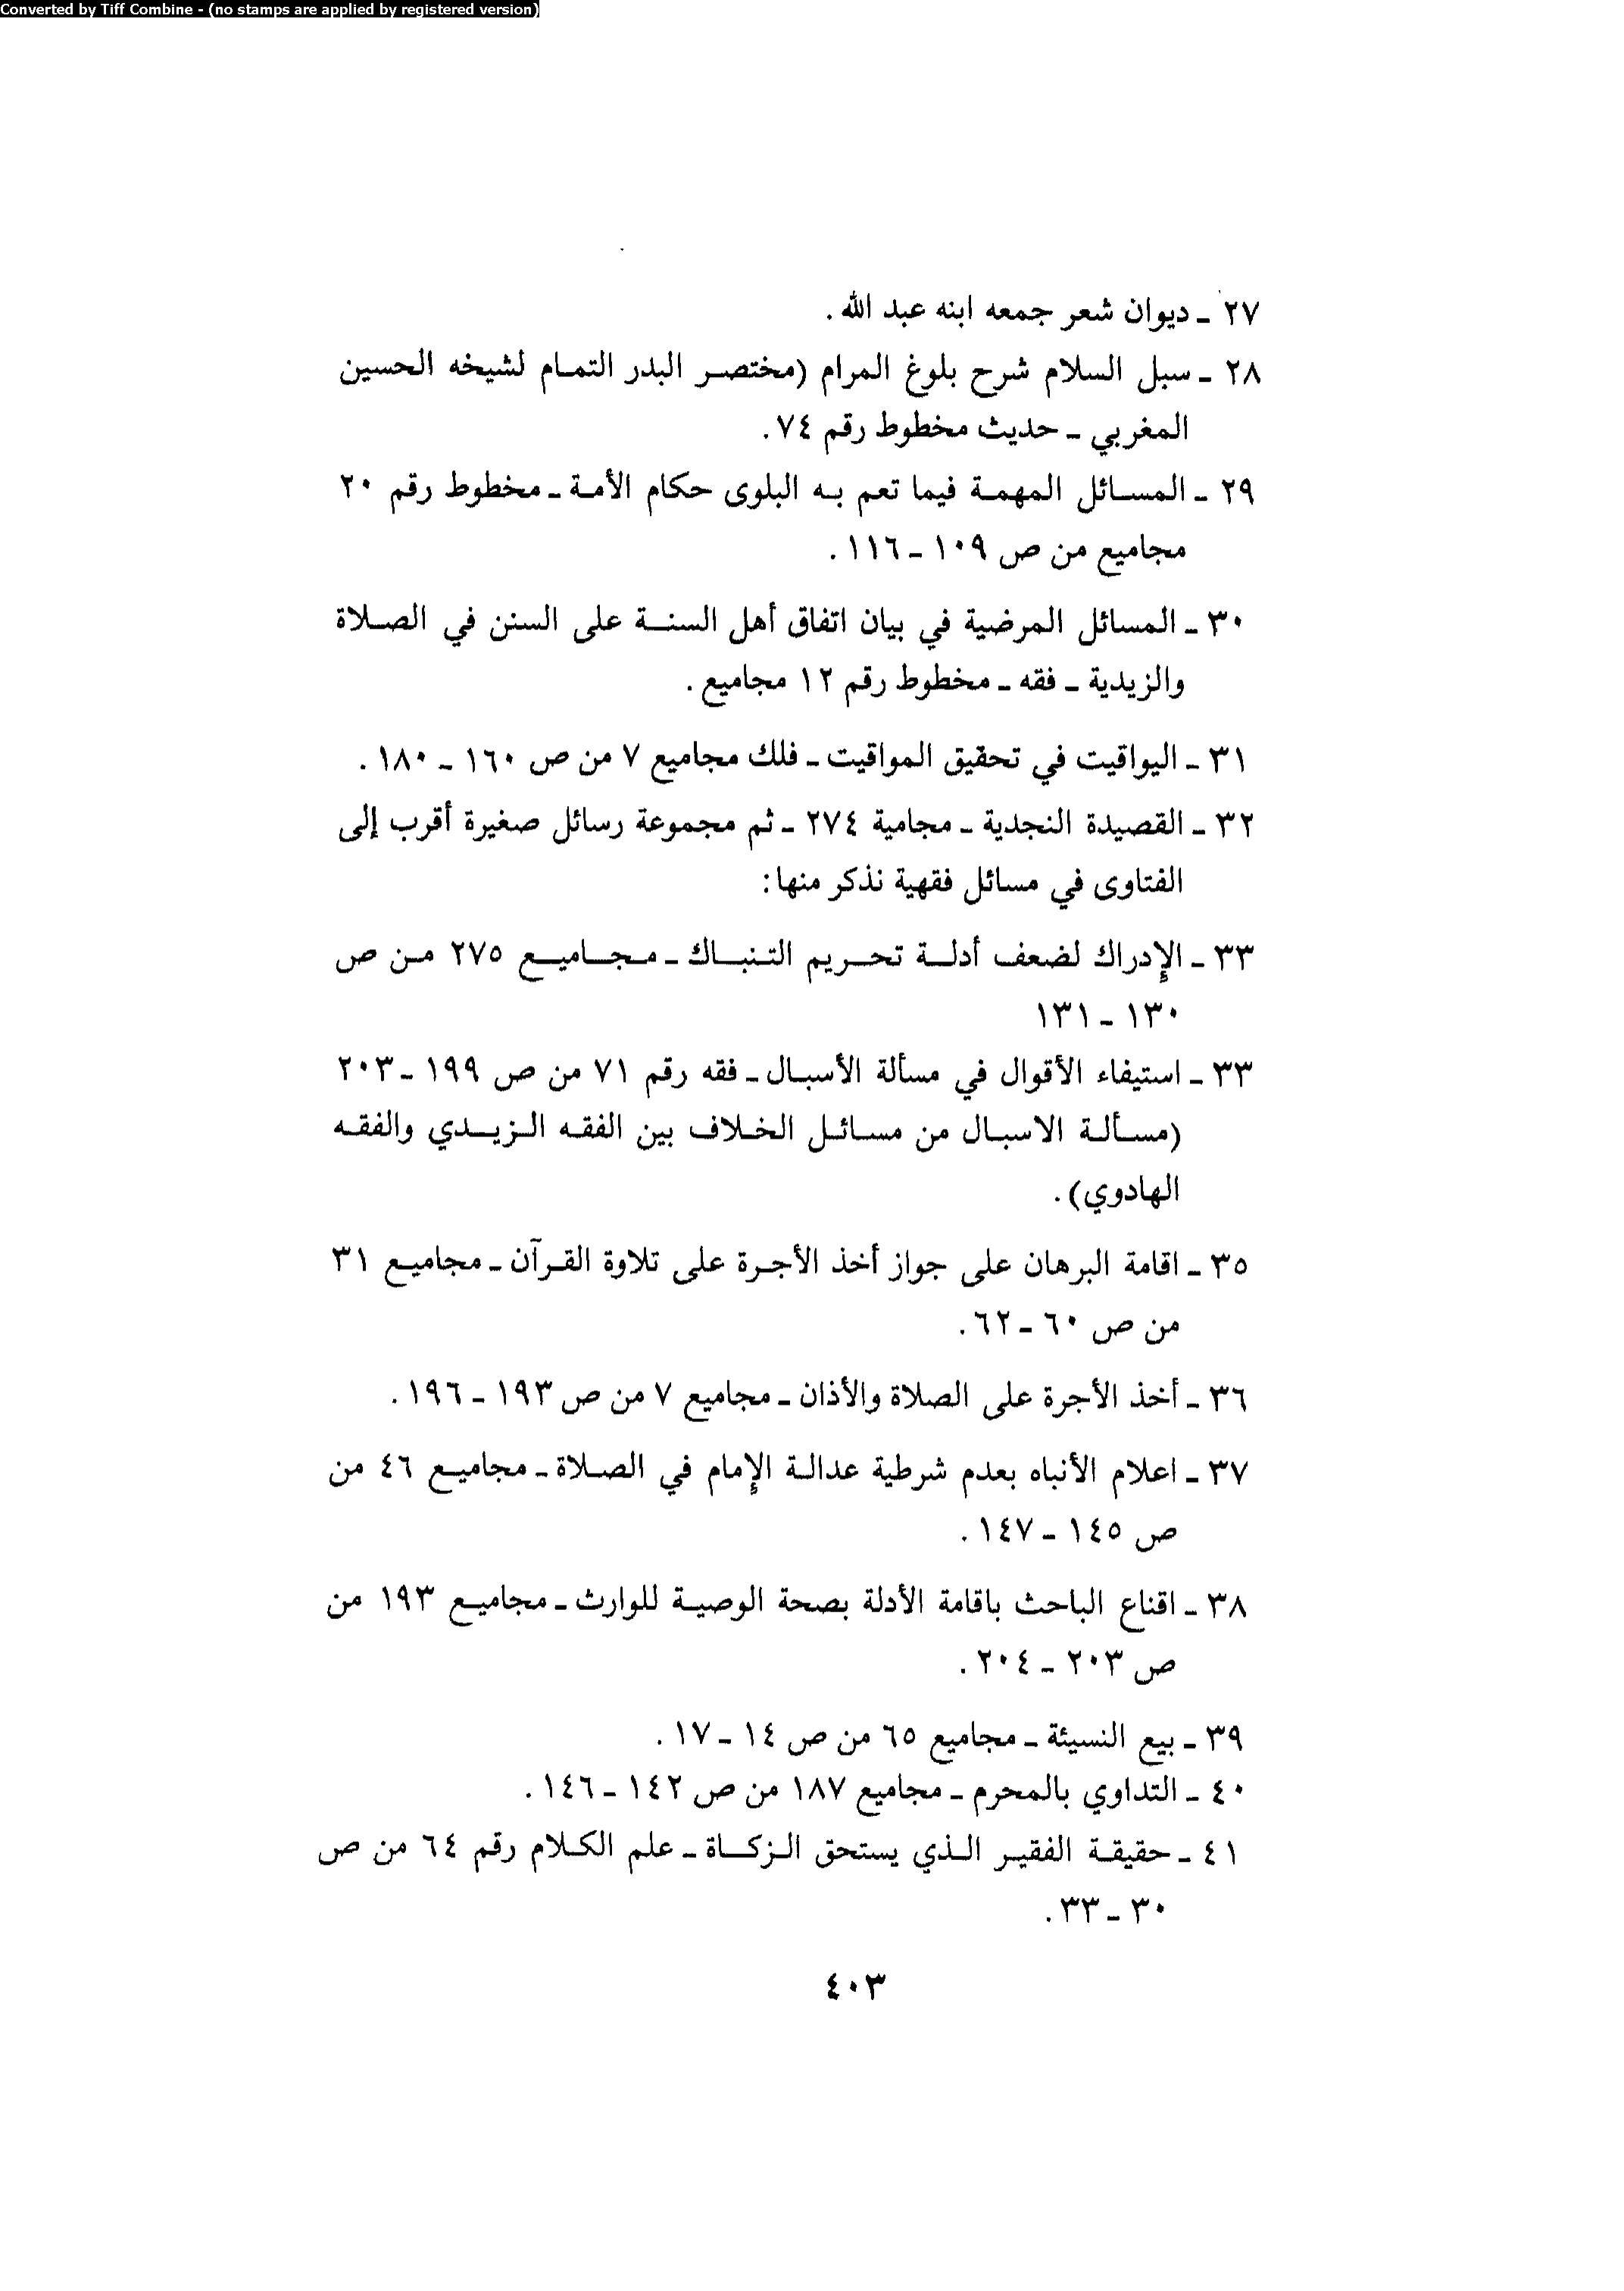 Converted by Tiff Combine - (no stamps are applied by registered version)
٢٧ ـ ديوان شعر جمعه ابنه عبد الله.
٢٨ ـ سبل السلام شرح بلوغ المرام (مختصر البدر التمام لشيخه الحسين
المغربي ـ حديث مخطوط رقم ٧٤.
٢٩ ـ المسائل المهمة فيما تعم به البلوى حكام الأمة ـ مخطوط رقم ٢٠
مجاميع من ص ١٠٩ ـ ١١٦.
٣٠ ـ المسائل المرضية في بيان اتفاق أهل السنة على السنن في الصلاة
والزيدية ـ فقه ـ مخطوط رقم ١٢ مجاميع.
٣١ ـ اليواقيت في تحقيق المواقيت ـ فلك مجاميع ٧ من ص ١٦٠ ـ ١٨٠.
٣٢ ـ القصيدة النجدية ـ مجامية ٢٧٤ ـ ثم مجموعة رسائل صغيرة أقرب إلى
الفتاوى في مسائل فقهية نذكر منها:
٣٣ ـ الإدراك لضعف أدلة تحريم التنباك ـ مجاميع ٢٧٥ من ص
١٣٠ ـ ١٣١
٣٣ ـ استيفاء الأقوال في مسألة الأسبال ـ فقه رقم ٧١ من ص ١٩٩ ـ ٢٠٣
(مسألة الاسبال من مسائل الخلاف بين الفقه الزيدي والفقه
الهادوي).
٣٥ ـ اقامة البرهان على جواز أخذ الأجرة على تلاوة القرآن ـ مجاميع ٣١
من ص ٦٠ ـ ٦٢.
٣٦ ـ أخذ الأجرة على الصلاة والأذان ـ مجاميع ٧ من ص ١٩٣ ـ ١٩٦.
٣٧ ـ اعلام الأنباه بعدم شرطية عدالة الإمام في الصلاة ـ مجاميع ٤٦ من
ص ١٤٥ ـ ١٤٧.
٣٨ ـ اقناع الباحث باقامة الأدلة بصحة الوصية للوارث ـ مجاميع ١٩٣ من
ص ٢٠٣ ـ ٢٠٤.
٣٩ ـ بيع النسيئة ـ مجاميع ٦٥ من ص ١٤ ـ ١٧.
٤٠ ـ التداوي بالمحرم ـ مجاميع ١٨٧ من ص ١٤٢ ـ ١٤٦.
٤١ ـ حقيقة الفقير الذي يستحق الزكاة ـ علم الكلام رقم ٦٤ من ص
٣٠ ـ ٣٣.
٤٠٣